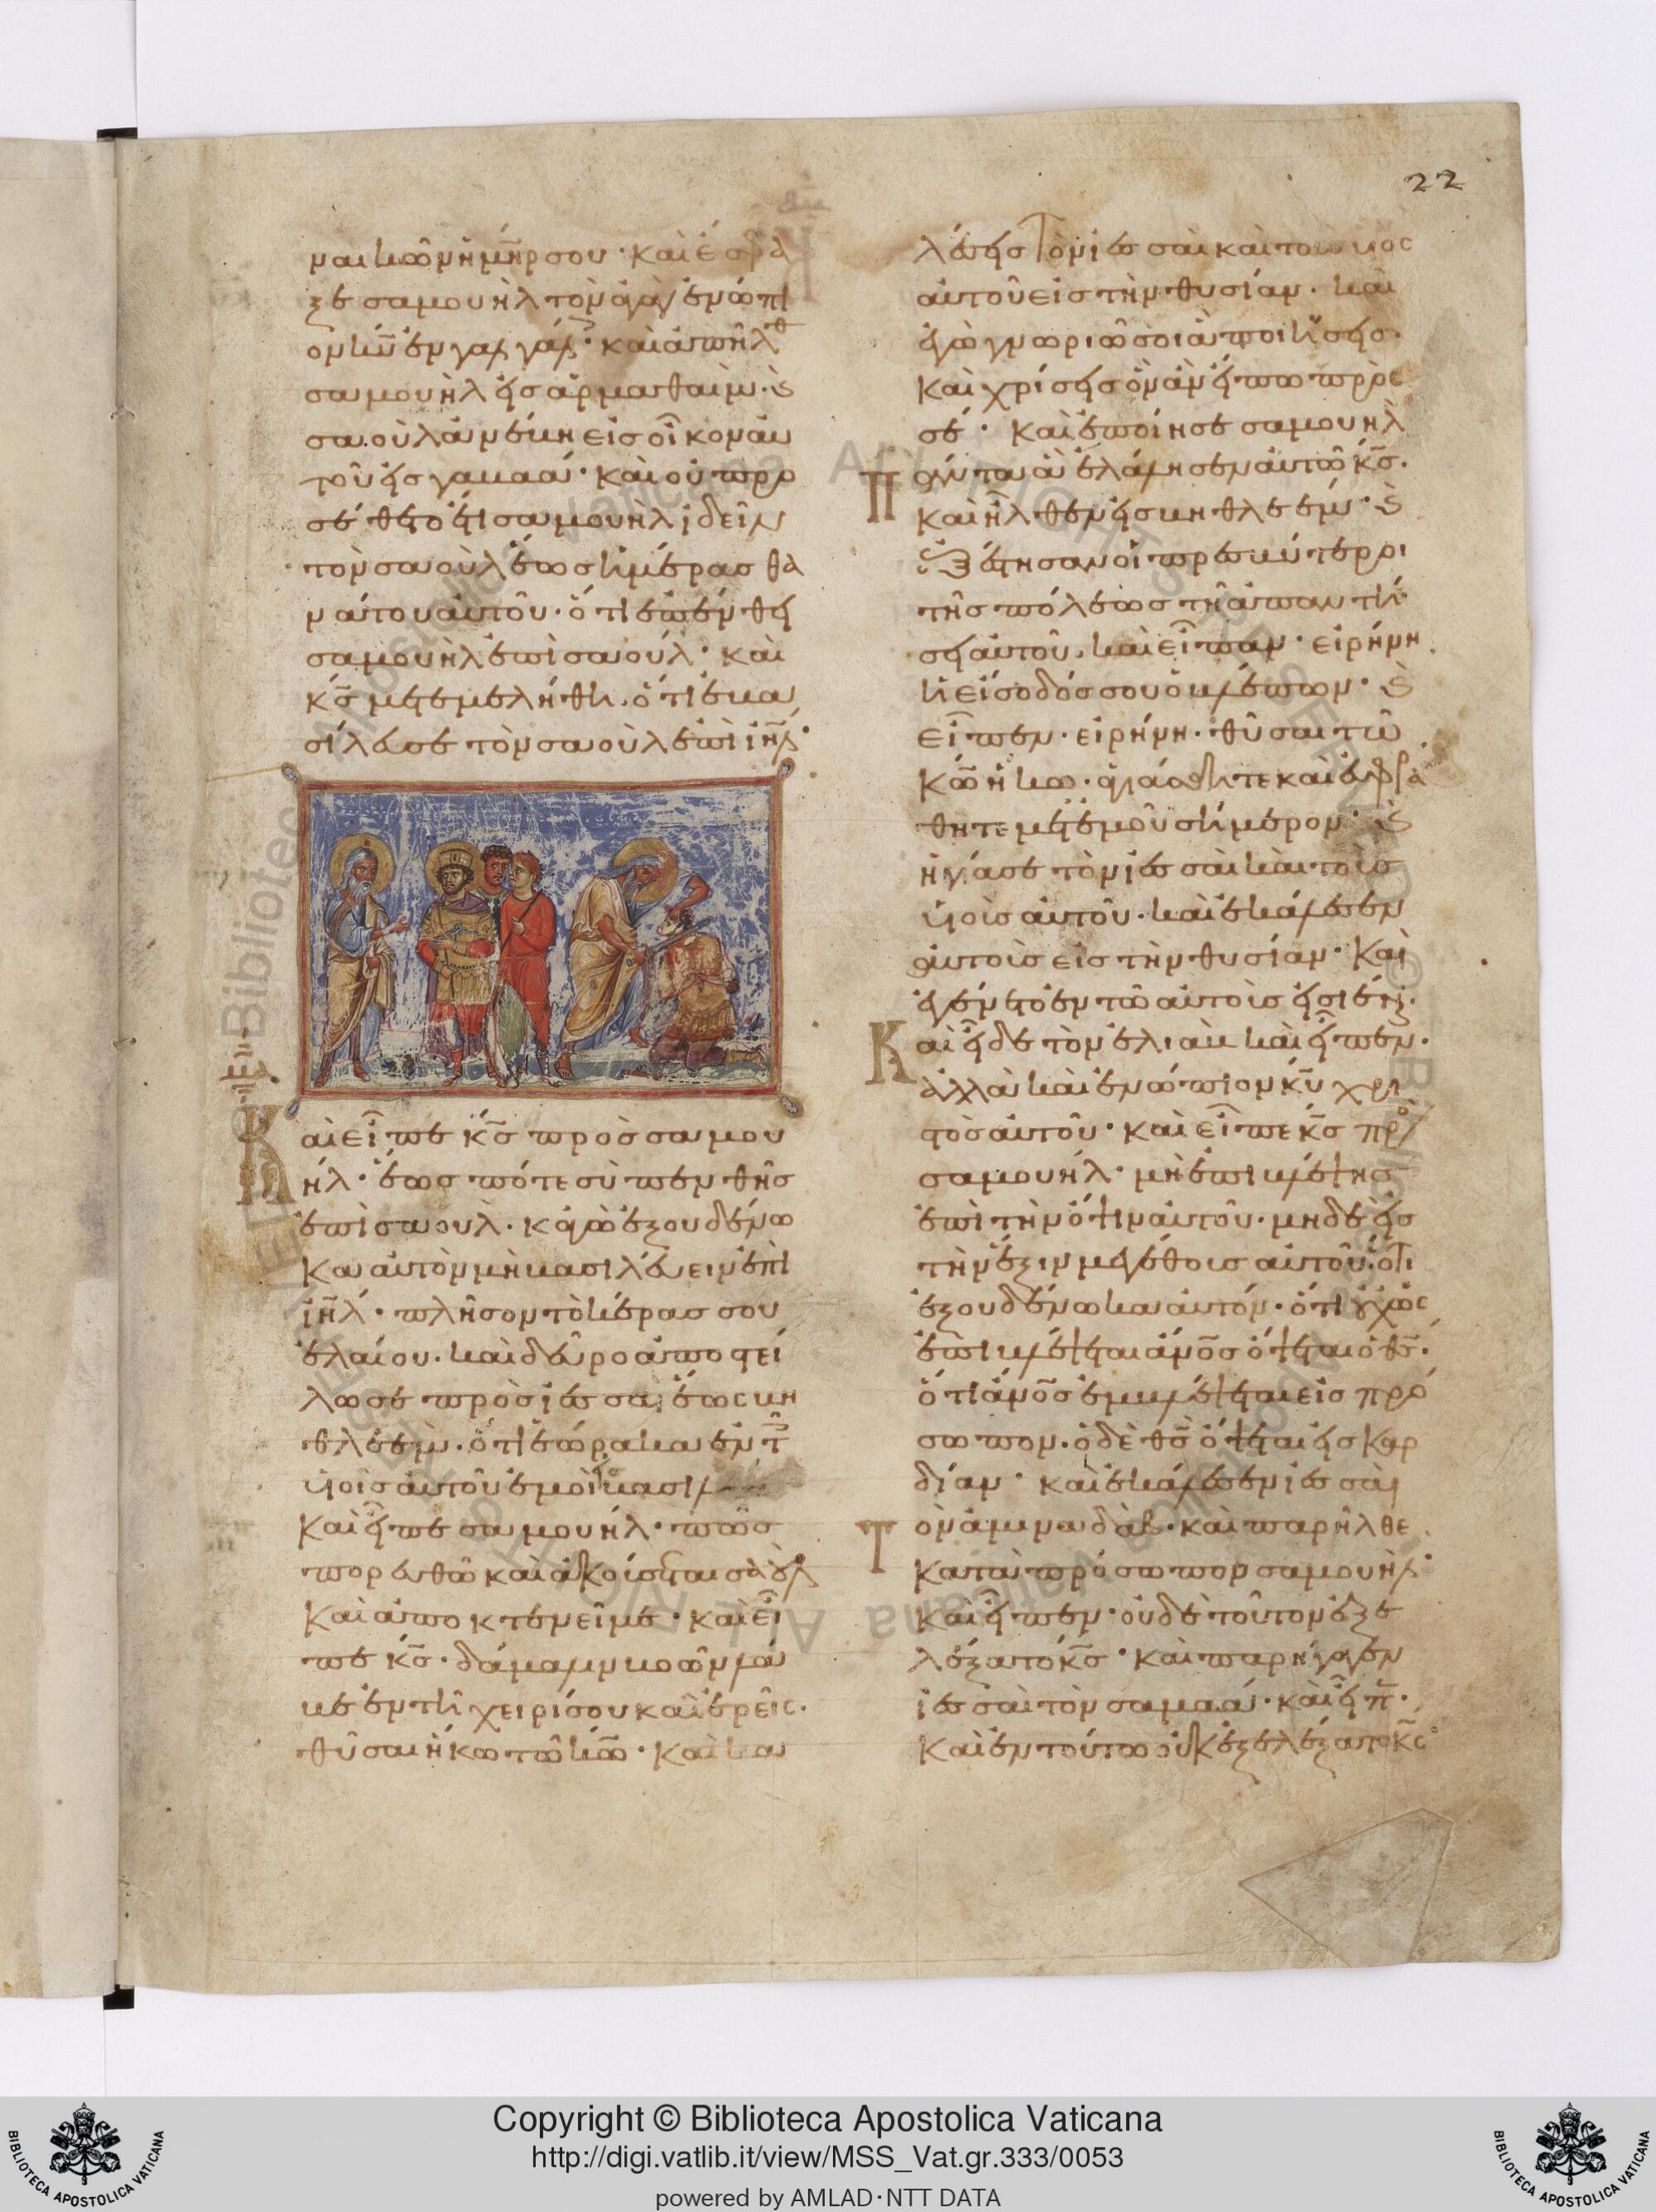 22
ναικῶν ἡ μη̅ρ σου· καὶ ἔσφα
ξε σαμουὴλ τὸν ἀγὰγ ἐνώπι
ον κυ̅ ἐν γαλγάλ· καὶ ἀπῆλθ
σαμουὴλ εἰς ἀρμαθαίμ· καὶ
σαοὺλ ἀνέβη εἰς οἶκον αὐ
τοῦ εἰς γαβαά· καὶ οὐ προ
σέθετο ἔτι σαμουὴλ ἰδεῖν
τὸν σαοὺλ ἕως ἡμέρας θα
νάτου αὐτοῦ· ὅτι ἐπένθει
σαμουὴλ ἐπὶ σαούλ· καὶ
κς̅ μετεμελήθη· ὅτι ἐβα
σίλευσε τὸν σαοὺλ ἐπὶ ιη̅λ·
Καὶ εἶπε κς̅ πρὸς σαμου
ήλ· ἕως πότε σὺ πενθῆς
ἐπὶ σαουλ· κἀγὼ ἐξουδένω
κα αὐτὸν μὴ βασιλεύειν ἐπὶ
ιη̅λ· πλῆσον τὸ κέρας σου
ἐλαίου· καὶ δεῦρο ἀποστεί
λω σε πρὸς ἰεσσαὶ ἕως βη
θλεέμ· ὅτι ἑώρακα ἐν τοῖς
υἱοῖς αὐτοῦ ἐμοὶ βασιλ
Καὶ εἶπε σαμουήλ· πῶς
πορευθῶ καὶ ἀκούσεται σαοὺλ
καὶ ἀποκτενεῖ με· καὶ εἶ
πε κς̅· δάμαλιν βοῶν λά
βε ἐν τῆ χειρί σου καὶ ἐρεῖς·
θῦσαι ἥκω τῶ κω̅· καὶ κα
λέσεις τὸν ἰεσσαὶ καὶ τοὺς υἱοὺς
αὐτοῦ εἰς τὴν θυσίαν· καὶ
ἐγὼ γνωριῶ σοι ἃ ποιήσεις·
καὶ χρίσεις ὃν ἂν εἴπω πρὸς
σέ· καὶ ἐποίησε σαμουὴλ
Πάντα ἃ ἐλάλησεν αὐτῶ κς̅·
καὶ ἦλθεν εἰς βηθλεέμ· καὶ
ἐξέστησαν οἱ πρεσβύτεροι
τῆς πόλεως τῆ ἀπαντή
σει αὐτοῦ· καὶ εἶπαν· εἰρήνη
ἡ εἴσοδός σου ὁ βλέπων· καὶ
εἶπεν· εἰρήνη· θῦσαι τῶ
κω̅ ἥκω· ἁγιάσθητε καὶ εὐφράν
θητε μετ ἐμοῦ σήμερον· καὶ
ἡγίασε τὸν ἰεσσαὶ καὶ τοὺς
υἱοὺς αὐτοῦ· καὶ ἐκάλεσεν
αὐτοὺς εἰς τὴν θυσίαν· καὶ
ἐγένετο ἐν τῶ αὐτοὺς εἰσιέναι·
Καὶ εἶδε τὸν ἐλιὰβ καὶ εἶπεν·
ἀλλὰ καὶ ἐνώπιον κυ̅ χρι
στὸς αὐτοῦ· καὶ εἶπε κς̅ πρὸς
σαμουήλ· μὴ ἐπιβλέψης
ἐπὶ τὴν ὄψιν αὐτοῦ· μηδὲ εἰς
τὴν ἕξιν μεγέθους αὐτοῦ· ὅτι
ἐξουδένωκα αὐτόν· ὅτι οὐχ ὡς
ἐπιβλέψεται αν̅ος ὄψεται ὁ θς̅·
ὅτι αν̅ος ἐμβλέψεται εἰς πρό
σωπον· ὁ δὲ θς̅ ὄψεται εἰς καρ
δίαν· καὶ ἐκάλεσεν ἰεσσαὶ
Τὸν ἀμιναδάβ· καὶ παρῆλθε
κατὰ πρόσωπον σαμουήλ·
καὶ εἶπεν· οὐδὲ τοῦτον ἐξε
λέξατο κς̅· καὶ παρήγαγεν
ἰεσσαὶ τὸν σαμαά· καὶ εἶπ·
καὶ ἐν τούτω οὐκ ἐξελέξατο κς̅
Copyright © Biblioteca Apostolica Vaticana
http://digi.vatlib.it/view/MSS_Vat.gr.333/0053
powered by AMLAD·NTT DATA
BIBLIOTECA APOSTOLICA VATICANA
BIBLIOTECA APOSTOLICA VATICANA